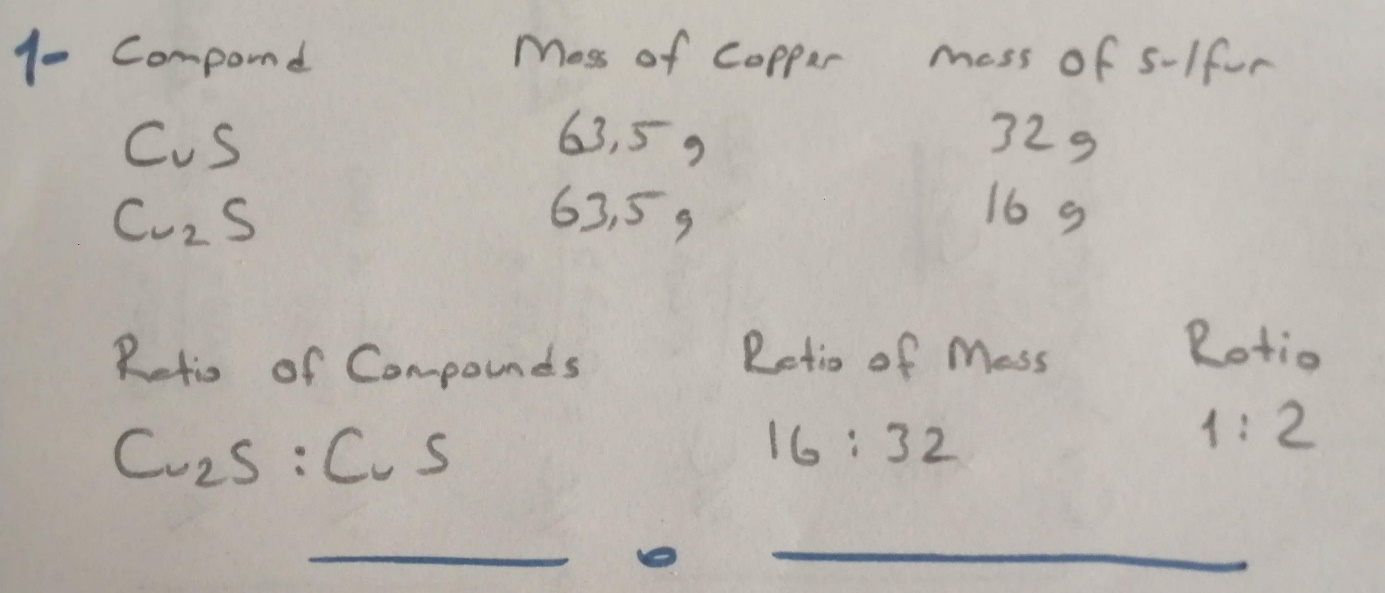 1- Compound Mass of Copper mass of sulfur
CuS 63,5 g 32 g
Cu2S 63,5 g 16 g
Ratio of Compounds Ratio of Mass Ratio
Cu2S : CuS 16 : 32 1 : 2